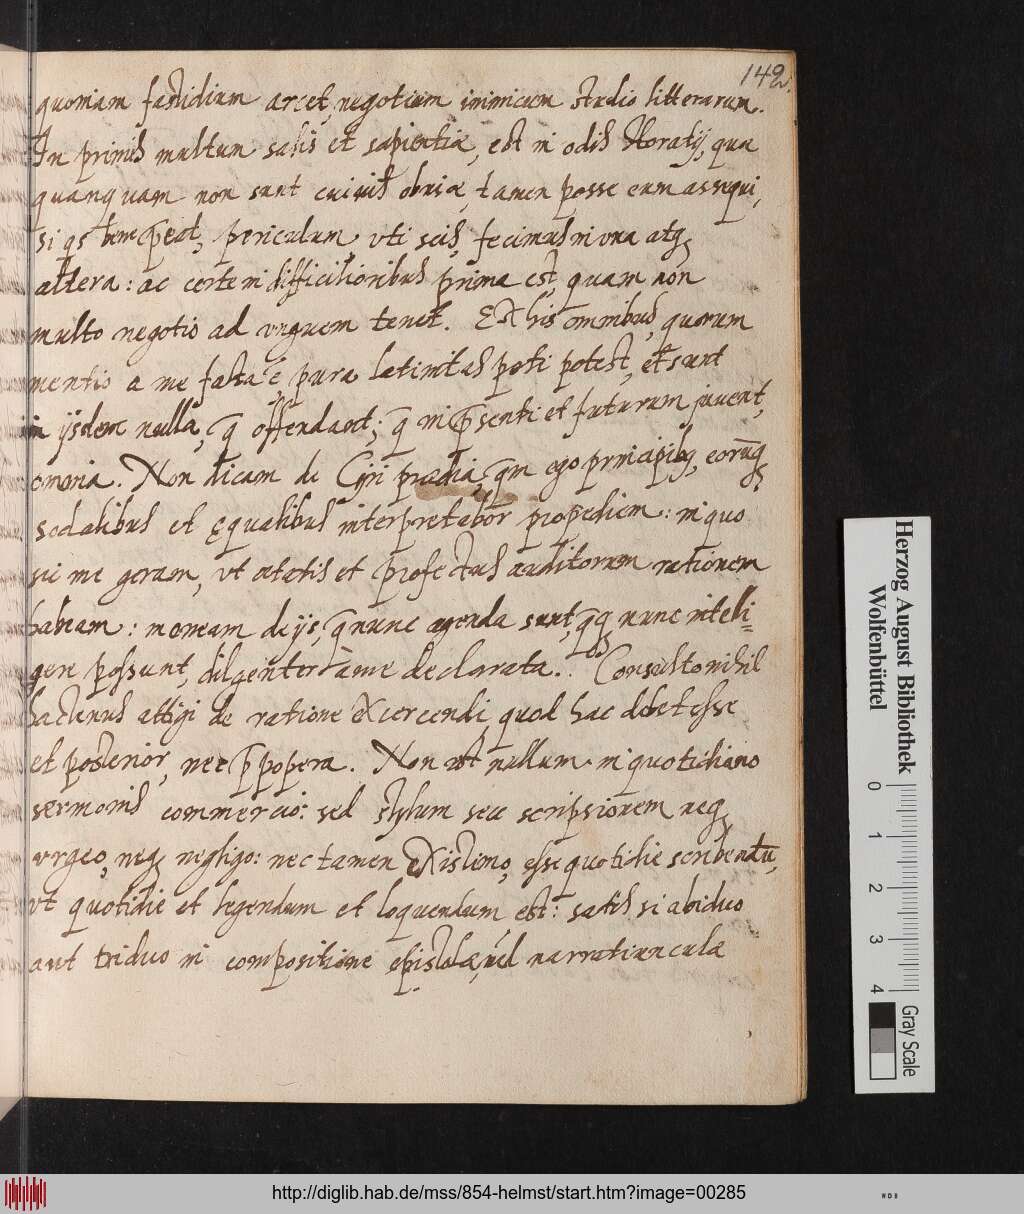 142.
quoniam fastidium arcet, negotium inimicum studio litterarum.
In primis multum salis et sapientiæ, est in odis Horatij, quæ
quanquam non sunt cuivis obviæ, tamen posse eum assequi,
si qs bene p̄eat, periculum vti scis, fecimus in una atq;
altera: ac certe in difficilioribus prima est, quam non
multo negotio ad vnguem tenet. Ex his omnibus, quorum
mentio a me facta ē, pura latinitas peti potest, et sunt
in ijsdem nulla, q̄ offendant; q̄ in p̄senti et futurum juvent,
omnia. Non dicam de Cyri pædia, quā ego principibg, eorūq;
sodalibus et ęqualibus interpretabor propediem: in quo
sic me geram, vt ætatis et profectus auditorum rationem
habeam: moneam de ijs, q̄ nunc agenda sunt, q̄q nunc intelli=
gere possunt, diligenter a me declarata. Consulto nihil
hactenus attigi de ratione exercendi, quod hæc debet esse
et posterior, nec p̄ opera. Non est nullum in quotidiano
sermonis commercio: sed stylum seu scripsionem neq;
urgeo, neq; negligo: nec tamen existimo, esse quotidie scribendū,
vt quotidie et legendum et loquendum est: satis si a biduo
aut triduo in compositione epistolæ, vel narratiunculæ
Herzog August Bibliothek
Wolfenbüttel
0 1 2 3 4
Gray Scale
http://diglib.hab.de/mss/854-helmst/start.htm?image=00285
WDB